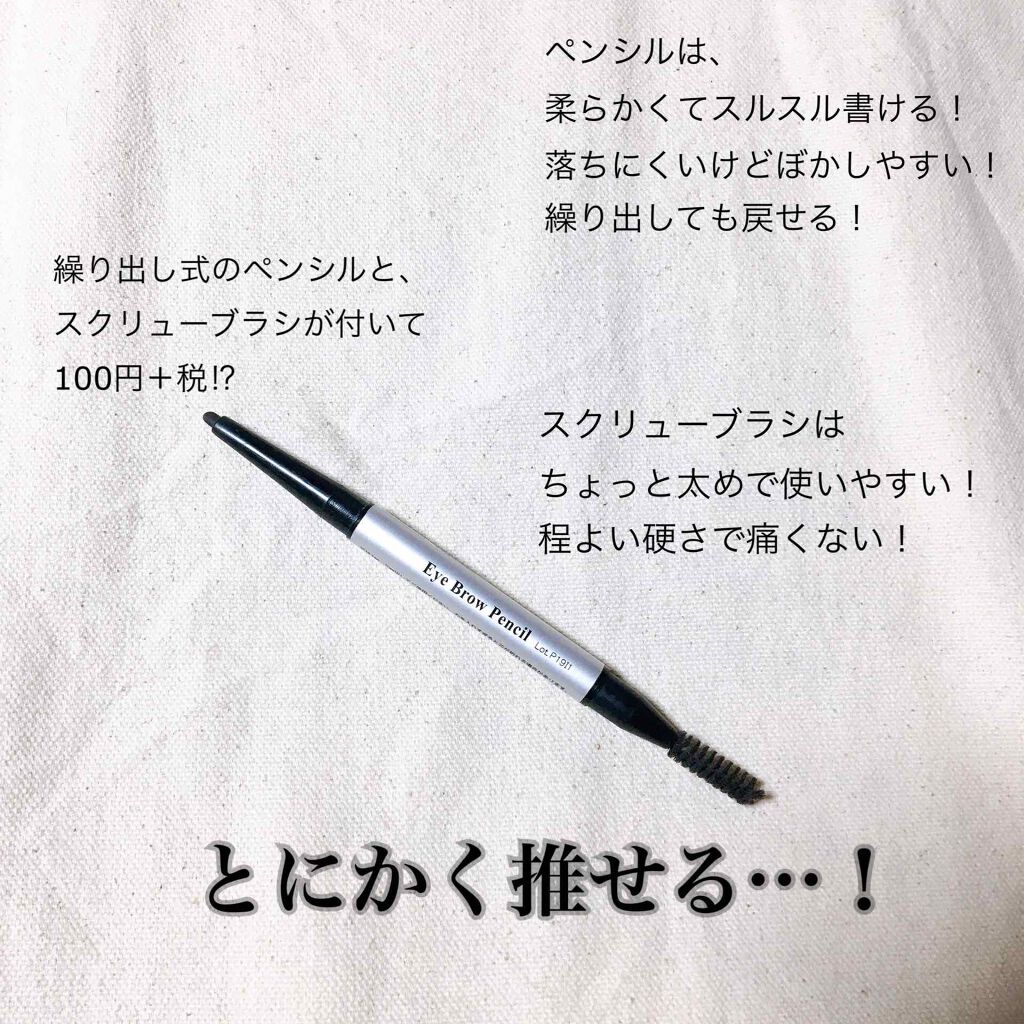 ペンシルは、
柔らかくてスルスル書ける！
落ちにくいけどぼかしやすい！
繰り出しても戻せる！
繰り出し式のペンシルと、
スクリューブラシが付いて
100円＋税⁉
スクリューブラシは
ちょっと太めで使いやすい！
程よい硬さで痛くない！
Eye Brow Pencil
Lot.P19I1
とにかく推せる…！